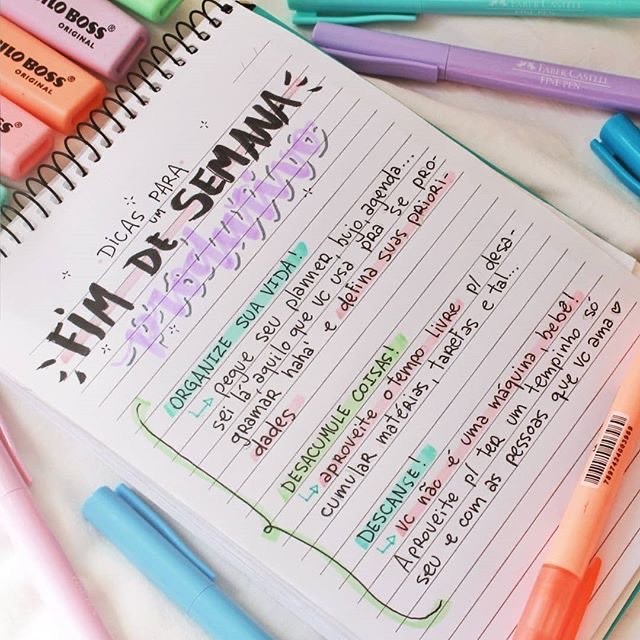 BOSS
ORIGINAL
STABILO BOSS
ORIGINAL
FABER-CASTELL
FINE PEN
DICAS PARA
um
FIM DE SEMANA
produtivo
ORGANIZE SUA VIDA!
↳ pegue seu planner, bujo, agenda...
sei lá aquilo que vc usa pra se pro-
gramar haha' e defina suas priori-
dades
DESACUMULE COISAS!
↳ aproveite o tempo livre p/ desa-
cumular matérias, tarefas e tal...
DESCANSE!
↳ vc não é uma máquina bebê!
Aproveite p/ ter um tempinho só
seu e com as pessoas que vc ama ♡